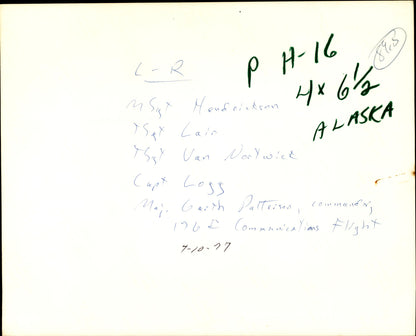 L-R
MSgt Hendrickson
TSgt Lain
TSgt Van Nostwick
Capt Logg
Maj. Garth Patterson, commanding
196 Communications Flight
7-10-77
P H-16
4x 6 1/2
ALASKA